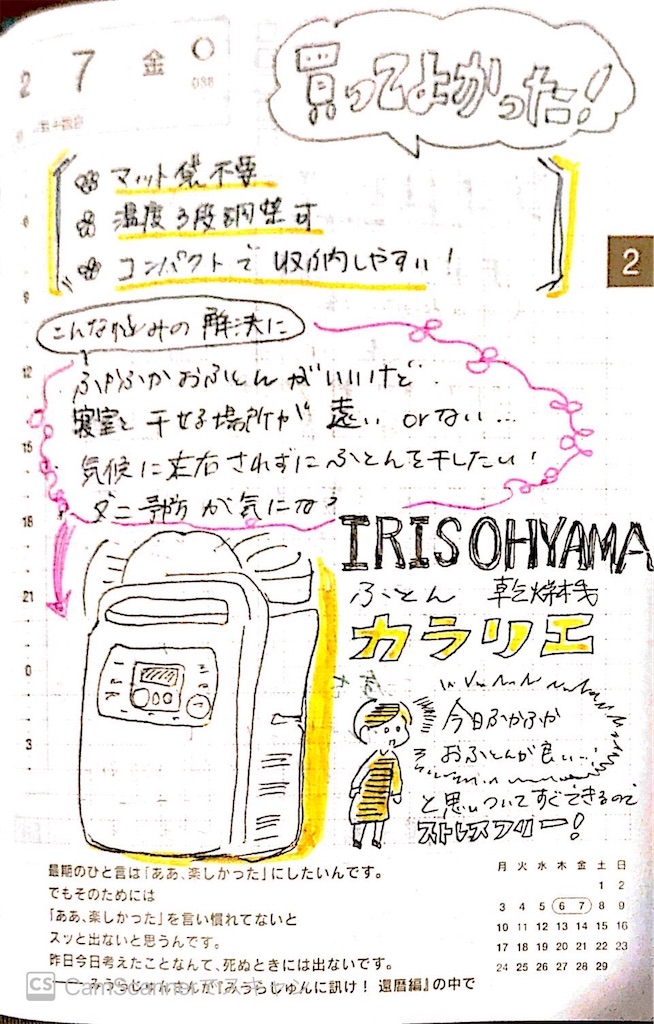 2 7 金
038
買ってよかった!
マット袋不要
温度3段調整可
コンパクトで収納しやすい!
2
こんな悩みの解決に
ふかふかおふとんがいいけど
寝室と干せる場所が遠い orない…
気候に左右されずにふとんを干したい!
ダニ が気になる
IRIS OHYAMA
ふとん 乾燥機
カラリエ
今日ふかふか
おふとんが良い…
と思いついてすぐできるので
ストレスフリー!
9
12
15
18
21
0
3
最期のひと言は「ああ、楽しかった」にしたいんです。
でもそのためには
「ああ、楽しかった」を言い慣れてないと
スッと出ないと思うんです。
昨日今日考えたことなんて、死ぬときには出ないです。
──みうらじゅんさんが『みうらじゅんに訊け! 還暦編』の中で
月 火 水 木 金 土 日
1 2
3 4 5 6 7 8 9
10 11 12 13 14 15 16
17 18 19 20 21 22 23
24 25 26 27 28 29
CS CamScanner